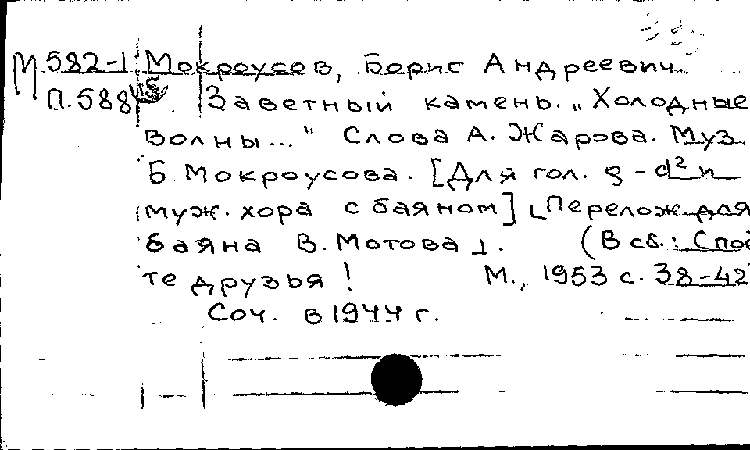 М 582-1 Мокроусов, Борис Андреевич.
П.588 Заветный камень. „Холодные
волны..." Слова А. Жарова. Муз.
Б. Мокроусова. [Для гол.
муж. хора с баяном] [Перелож. для
баяна В. Мотова]. (В сб.: Спой
те друзья! М., 1953 с. 38-42
Соч. в 1944 г.